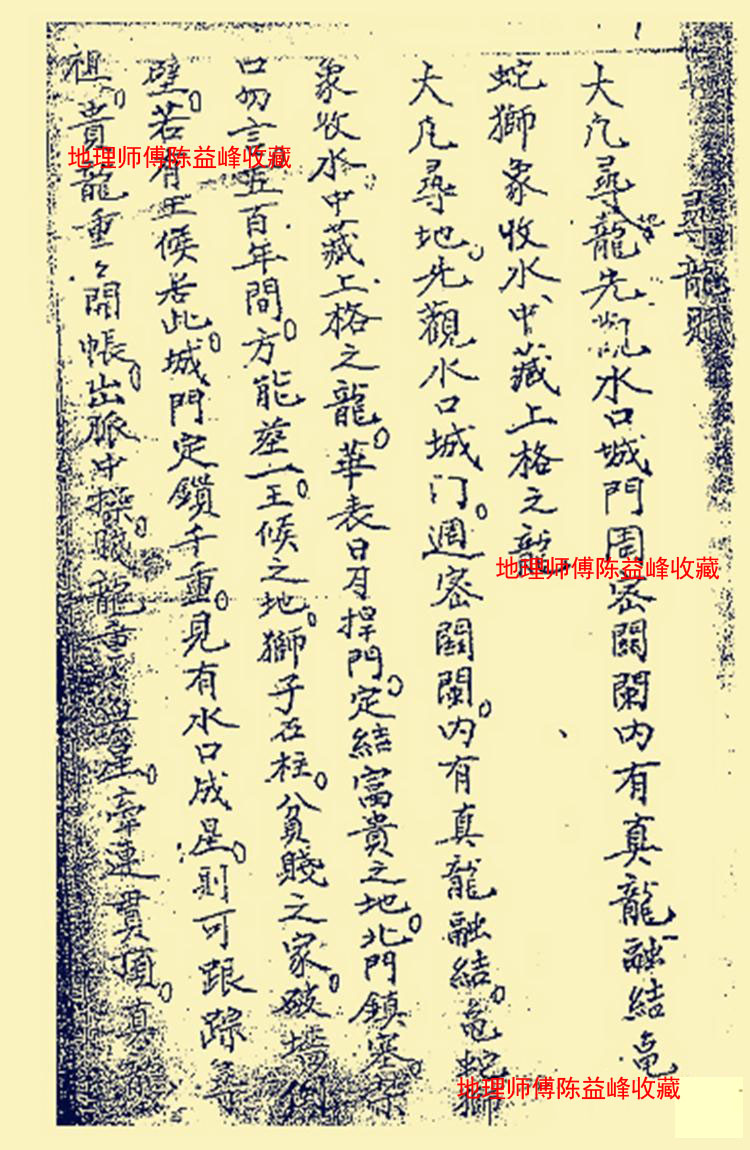 尋龍賦
大凡尋龍先观水口城門周密闗闌内有真龍融结龟
蛇獅象收水中藏上格之龍
大凡尋地先觀水口城门週密闗闌内有真龍融結龟蛇獅
象收水中藏上格之龍華表日月捍門定結富貴之地北門鎮塞
口勿言五百年間方能塟一王候之地獅子石柱貧賤之家破墻倒
壁若有王候若此城門定鎖千重見有水口成星則可跟踪
祖貴龍重々開帳出脈中賤龍星牽連貫頂真
地理师傅陈益峰收藏
地理师傅陈益峰收藏
地理师傅陈益峰收藏